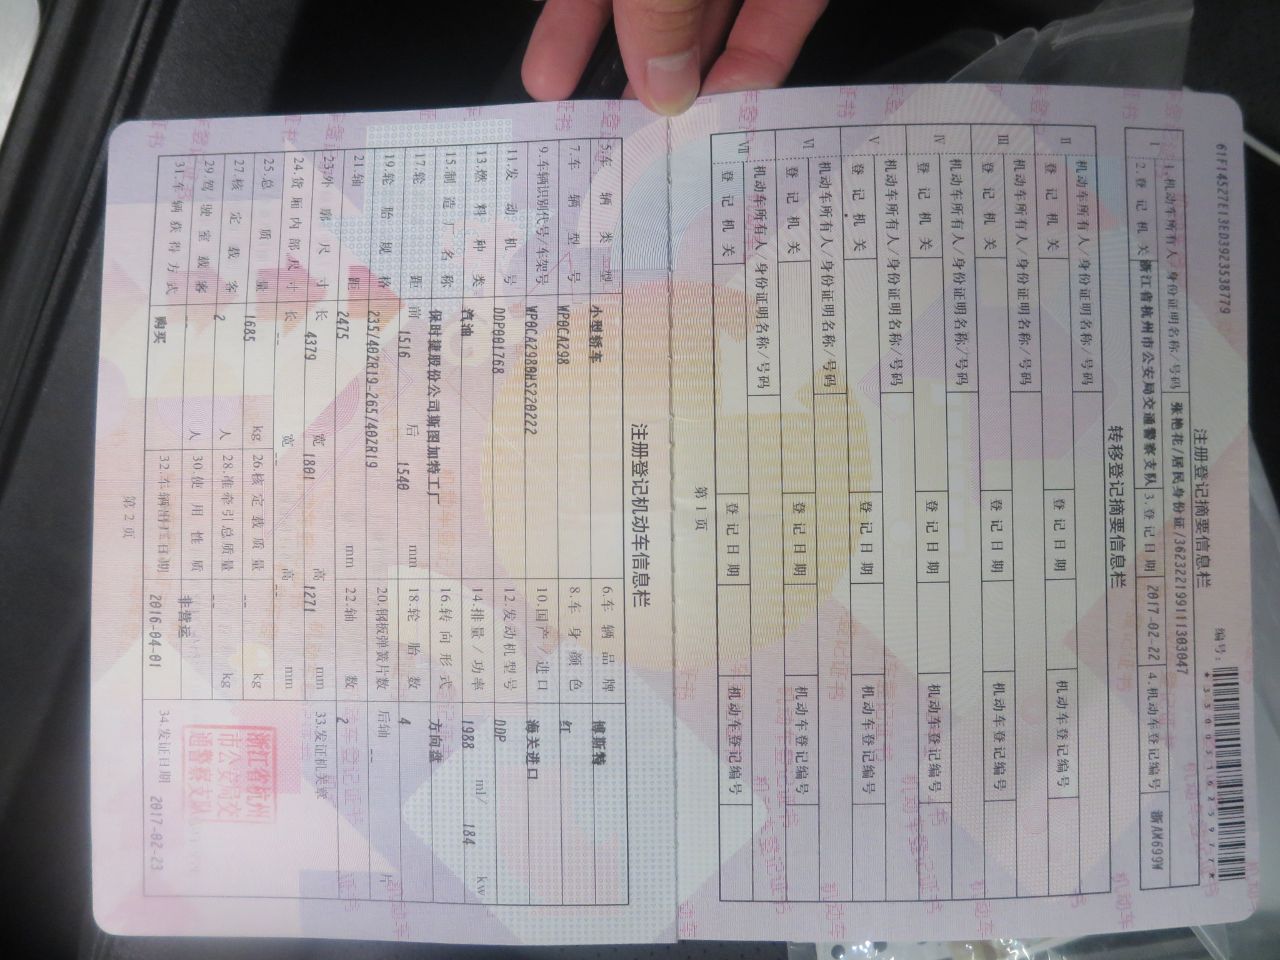 61F14527E13ED3923538779
编号:
*330031625977*
注册登记摘要信息栏
I
1.机动车所有人/身份证明名称/号码 张艳花/居民身份证/362322199111303047
2.登记机关 浙江省杭州市公安局交通警察支队 3.登记日期 2017-02-22 4.机动车登记编号 浙AM699W
转移登记摘要信息栏
II 机动车所有人/身份证明名称/号码
登记机关 登记日期 机动车登记编号
III 机动车所有人/身份证明名称/号码
登记机关 登记日期 机动车登记编号
IV 机动车所有人/身份证明名称/号码
登记机关 登记日期 机动车登记编号
V 机动车所有人/身份证明名称/号码
登记机关 登记日期 机动车登记编号
VI 机动车所有人/身份证明名称/号码
登记机关 登记日期 机动车登记编号
VII 机动车所有人/身份证明名称/号码
登记机关 登记日期 机动车登记编号
第1页
注册登记机动车信息栏
5.车辆类型 小型轿车 6.车辆品牌 博斯特
7.车辆型号 WP0CA298 8.车身颜色 红
9.车辆识别代号/车架号 WP0CA2980HS220222 10.国产/进口 海关进口
11.发动机号 DDP001768 12.发动机型号 DDP
13.燃料种类 汽油 14.排量/功率 1988 ml/ 184 kw
15.制造厂名称 保时捷股份公司斯图加特工厂 16.转向形式 方向盘
17.轮距 前 1516 后 1540 mm 18.轮胎数 4
19.轮胎规格 235/40ZR19-265/40ZR19 20.钢板弹簧片数 后轴 -- 片
21.轴距 2475 mm 22.轴数 2
23.外廓尺寸 长 4379 宽 1801 高 1271 mm 33.发证机关章
24.货厢内部尺寸 长 -- 宽 -- 高 -- mm
25.总质量 1685 kg 26.核定载质量 -- kg
27.核定载客 2 人 28.准牵引总质量 -- kg
29.驾驶室载客 -- 人 30.使用性质 非营运
31.车辆获得方式 购买 32.车辆出厂日期 2016-04-01 34.发证日期 2017-02-23
浙江省杭州
市公安局交
通警察支队
第2页